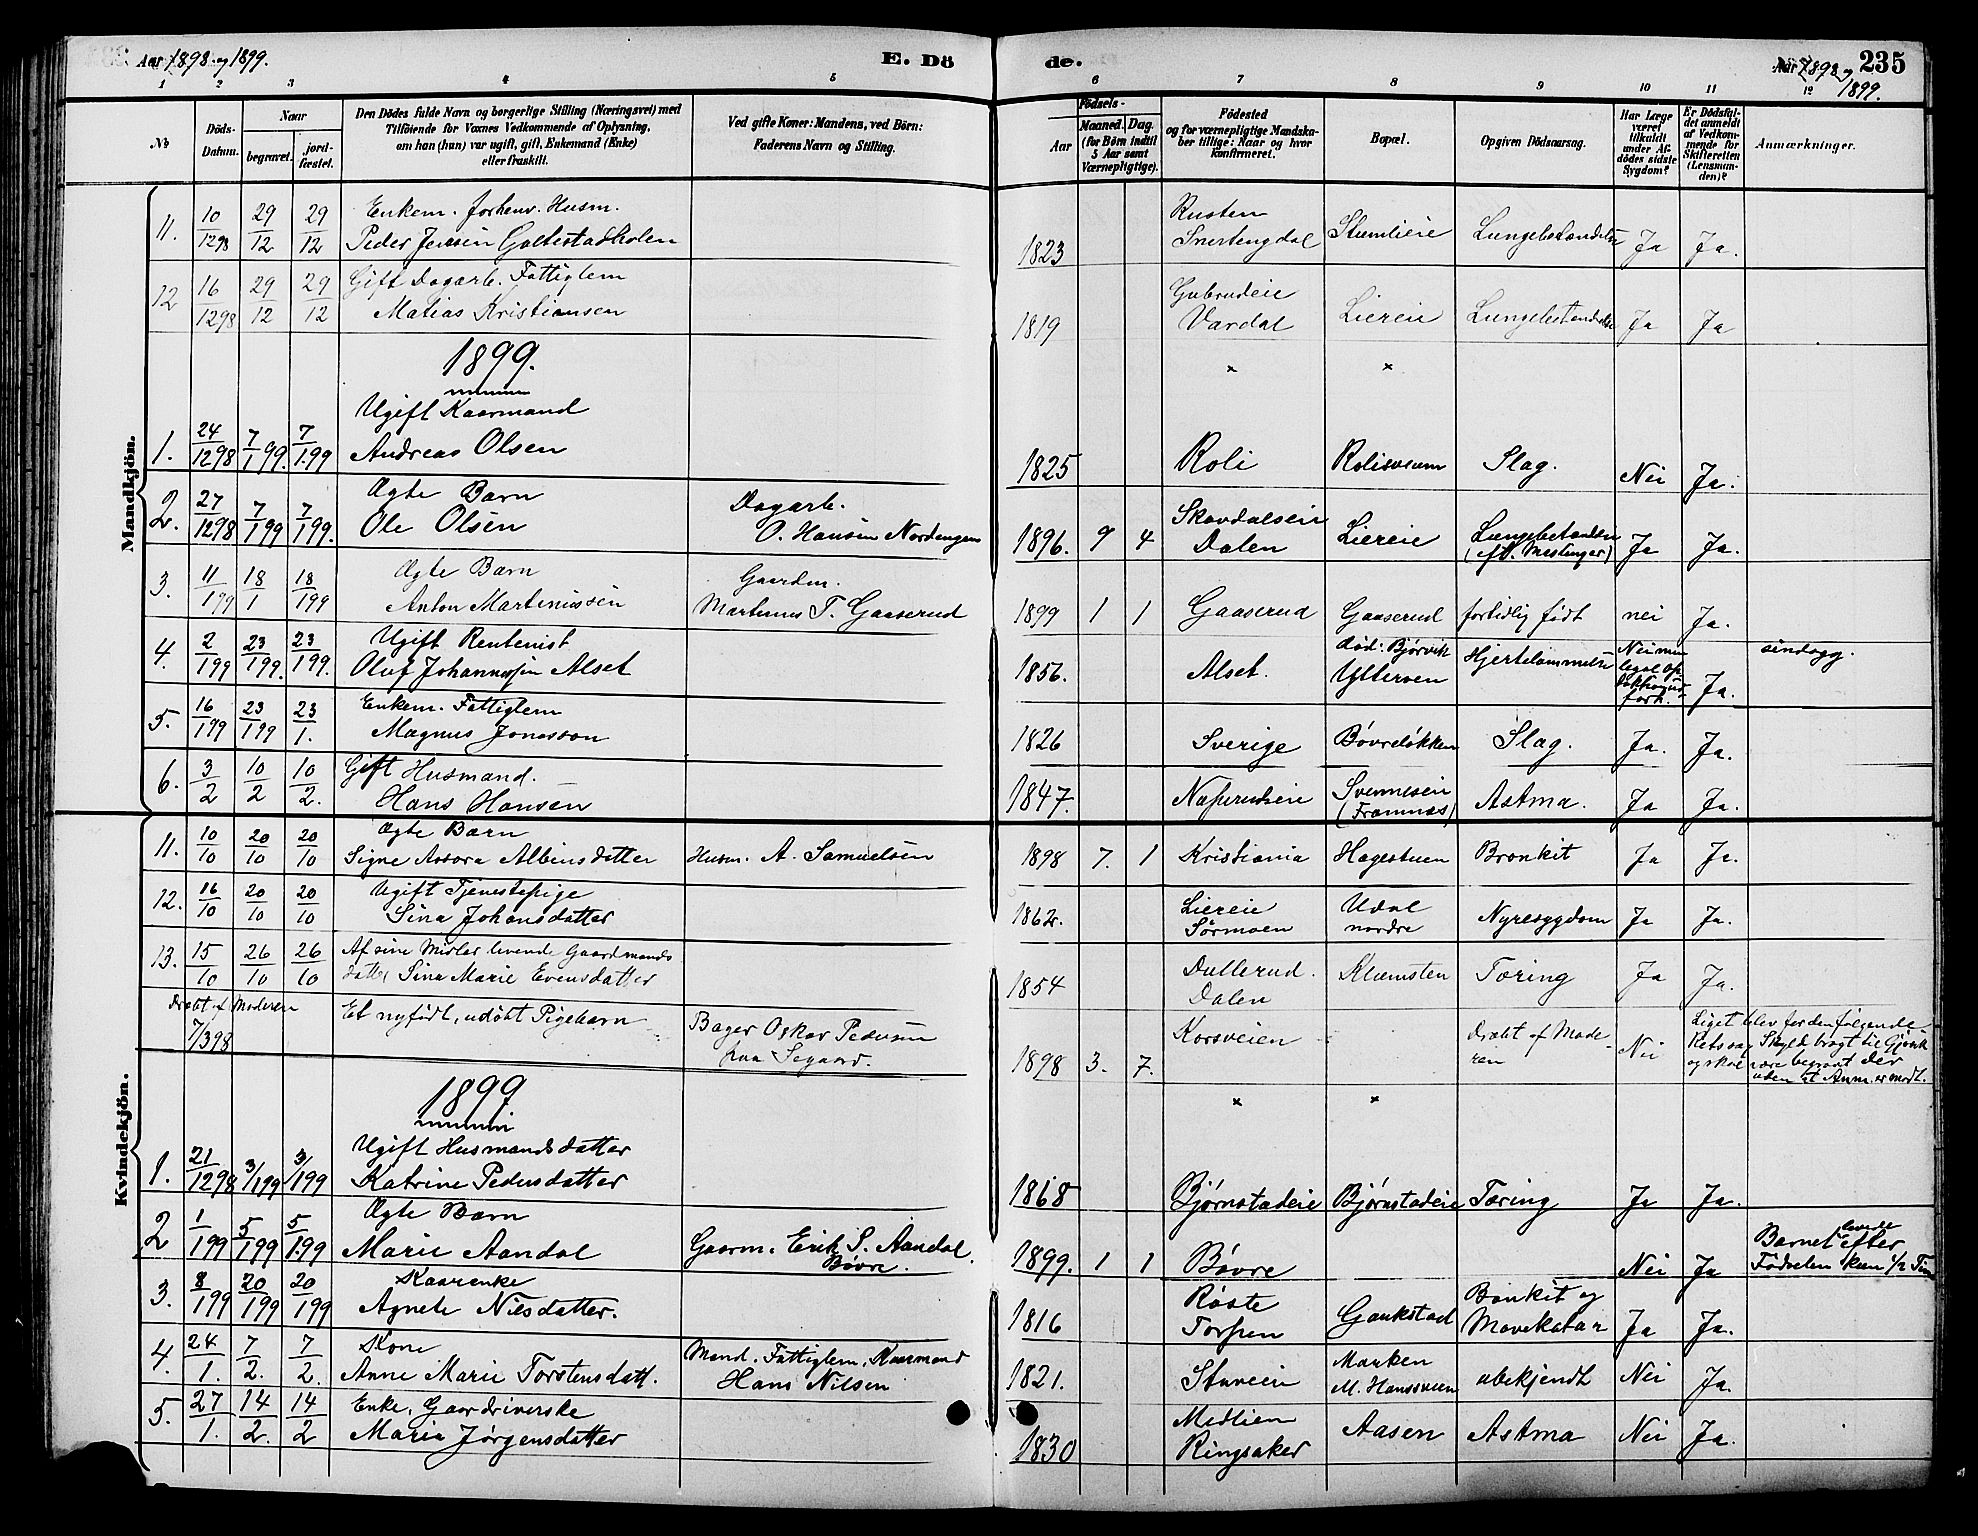 Aar 1898 og 1899.
E. Dö
de.
Aar 1898 og 1899.
235
1 2 3 4 5 6 7 8 9 10 11 12
No
Döds-Datum.
Naar
begravet.
jord-fæstet.
Den Dödes fulde Navn og borgerlige Stilling (Næringsvei) med
Tilföiende for Voxnes Vedkommende af Oplysning,
om han (hun) var ugift, gift, Enkemand (Enke)
eller fraskilt.
Ved gifte Koner: Mandens, ved Börn:
Faderens Navn og Stilling.
Födsels-
Aar
Maaned. Dag.
(for Börn indtil
5 Aar samt
Værnepligtige).
Födested
og for værnepligtige Mandska-
ber tillige: Naar og hvor
konfirmeret.
Bopæl.
Opgiven Dödsaarsag.
Har Læge
været
tilkaldt
under Af-
dödes sidste
Sygdom?
Er Dödsfal-
det anmeldt
af Vedkom-
mende for
Skifteretten
(Lensman-
den)?
Anmærkninger.
Mandkjön.
11. 10/1298 29/12 29/12 Enkem. forhenv. Husm.
Peder Jensen Galtestadholen 1823 Rusten
Snertengdal Lungebetændelse Ja Ja.
12 16/1298 29/12 29/12 Gift Dagarb. Fattiglem
Matias Kristiansen 1819 Gubrudeie
Vardal Liereie Lungebetændelse Ja Ja
1899.
1. 24/1298 7/199. 7/1.99 Ugift Kaarmand
Andreas Olsen 1825 Roli Slag. Nei Ja.
2. 27/1298 7/199 7/199. Ægte Barn
Ole Olsen Dagarb.
O. Hansen Nordengen 1896. 9 4 Skovdalseie
Dalen Liereie Lungebetændelse
Ja Ja.
3. 11/199 18/1 18/199 Ægte Barn
Anton Marteniussen Gaardm.
Martinus T. Gaaserud 1899 1 1 Gaaserud Gaaserud fortidlig født nei Ja.
4. 2/199 23/199. 23/199. Ugift Rentenist
Oluf Johannessen Alset 1856. Alset. død: Bjørvik
Ytterven Hjertelammelse Ja. sindsyg.
5. 16/199 23/199 23/1. Enkem. Fattiglem
Magnus Jonasson 1826 Sverige Bøvreløkken Slag. Ja. Ja.
6. 3/2 10/2 10/2. Gift Husmand.
Hans Hansen 1847. Næperudseie Svenneseie
(Framnæs) Astma. Ja Ja.
Kvindekjön.
11. 10/10 20/10 20/10 Ægte Barn
Signe Assora Albinsdatter Husm. A. Samuelsen 1898 7. 1 Kristiania Hagestuen Bronkit Ja Ja.
12. 16/10 20/10 20/10 Ugift Tjenestepige
Sina Johansdatter 1862. Liereie
Sørmoen Udal
nordre Nyresygdom Ja Ja.
13. 15/10 26/10 26/10 Af sine Midler levende Gaardmands
datter Sina Marie Evensdatter 1854 Dullerud.
Dalen Klæmsten Tæring Ja Ja.
Dræbt af Moderen
7/398 Et nyfødt, udøbt Pigebarn Bager Oskar Pedersen
fraa Segaard. 1898 3. 7. Korsveien Dræbt af Mode-
ren Nei Liget blev for den følgende
Retssags Skyld bragt til Gjøvik
og skal være begravet der
uden at Anm. er modt.
1899
1. 21/1298 3/199 3/199 Ugift Husmandsdatter
Katrine Pedersdatter 1868 Bjørnstadeie Bjørnstadeie Tæring Ja Ja.
2 1/199 5/199 5/1.99 Ægte Barn
Marie Aandal Gaarm. Erik S. Aandal.
Bøvre. 1899. 1 1 Bøvre Nei Ja Barnet levede efter
Fødselen kun 1/2 Time
3. 8/199 20/199 20/199 Kaarenke
Agnete Nilsdatter. 1816 Røste
Torpen Gaukstad Bronkit og
Mavekatar Ja Ja.
4. 24/1. 7/2. 7/2. Kone
Anne Marie Torstensdatt. Mand. Fattiglem, Kaarmand
Hans Nilsen 1821. Stuveie Marken
M. Hansveien ubekjendt Nei Ja.
5. 27/1. 14/2. 14/2 Enke, Gaardriverske
Maria Jørgensdatter 1830 Medlien
Ringsaker Aasen Astma Nei Ja.